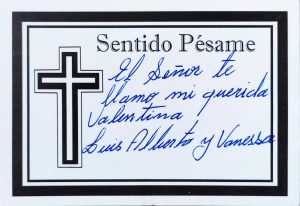 Sentido Pésame
El Señor te
llamo mi querida
Valentina
Luis Alberto y Vanessa